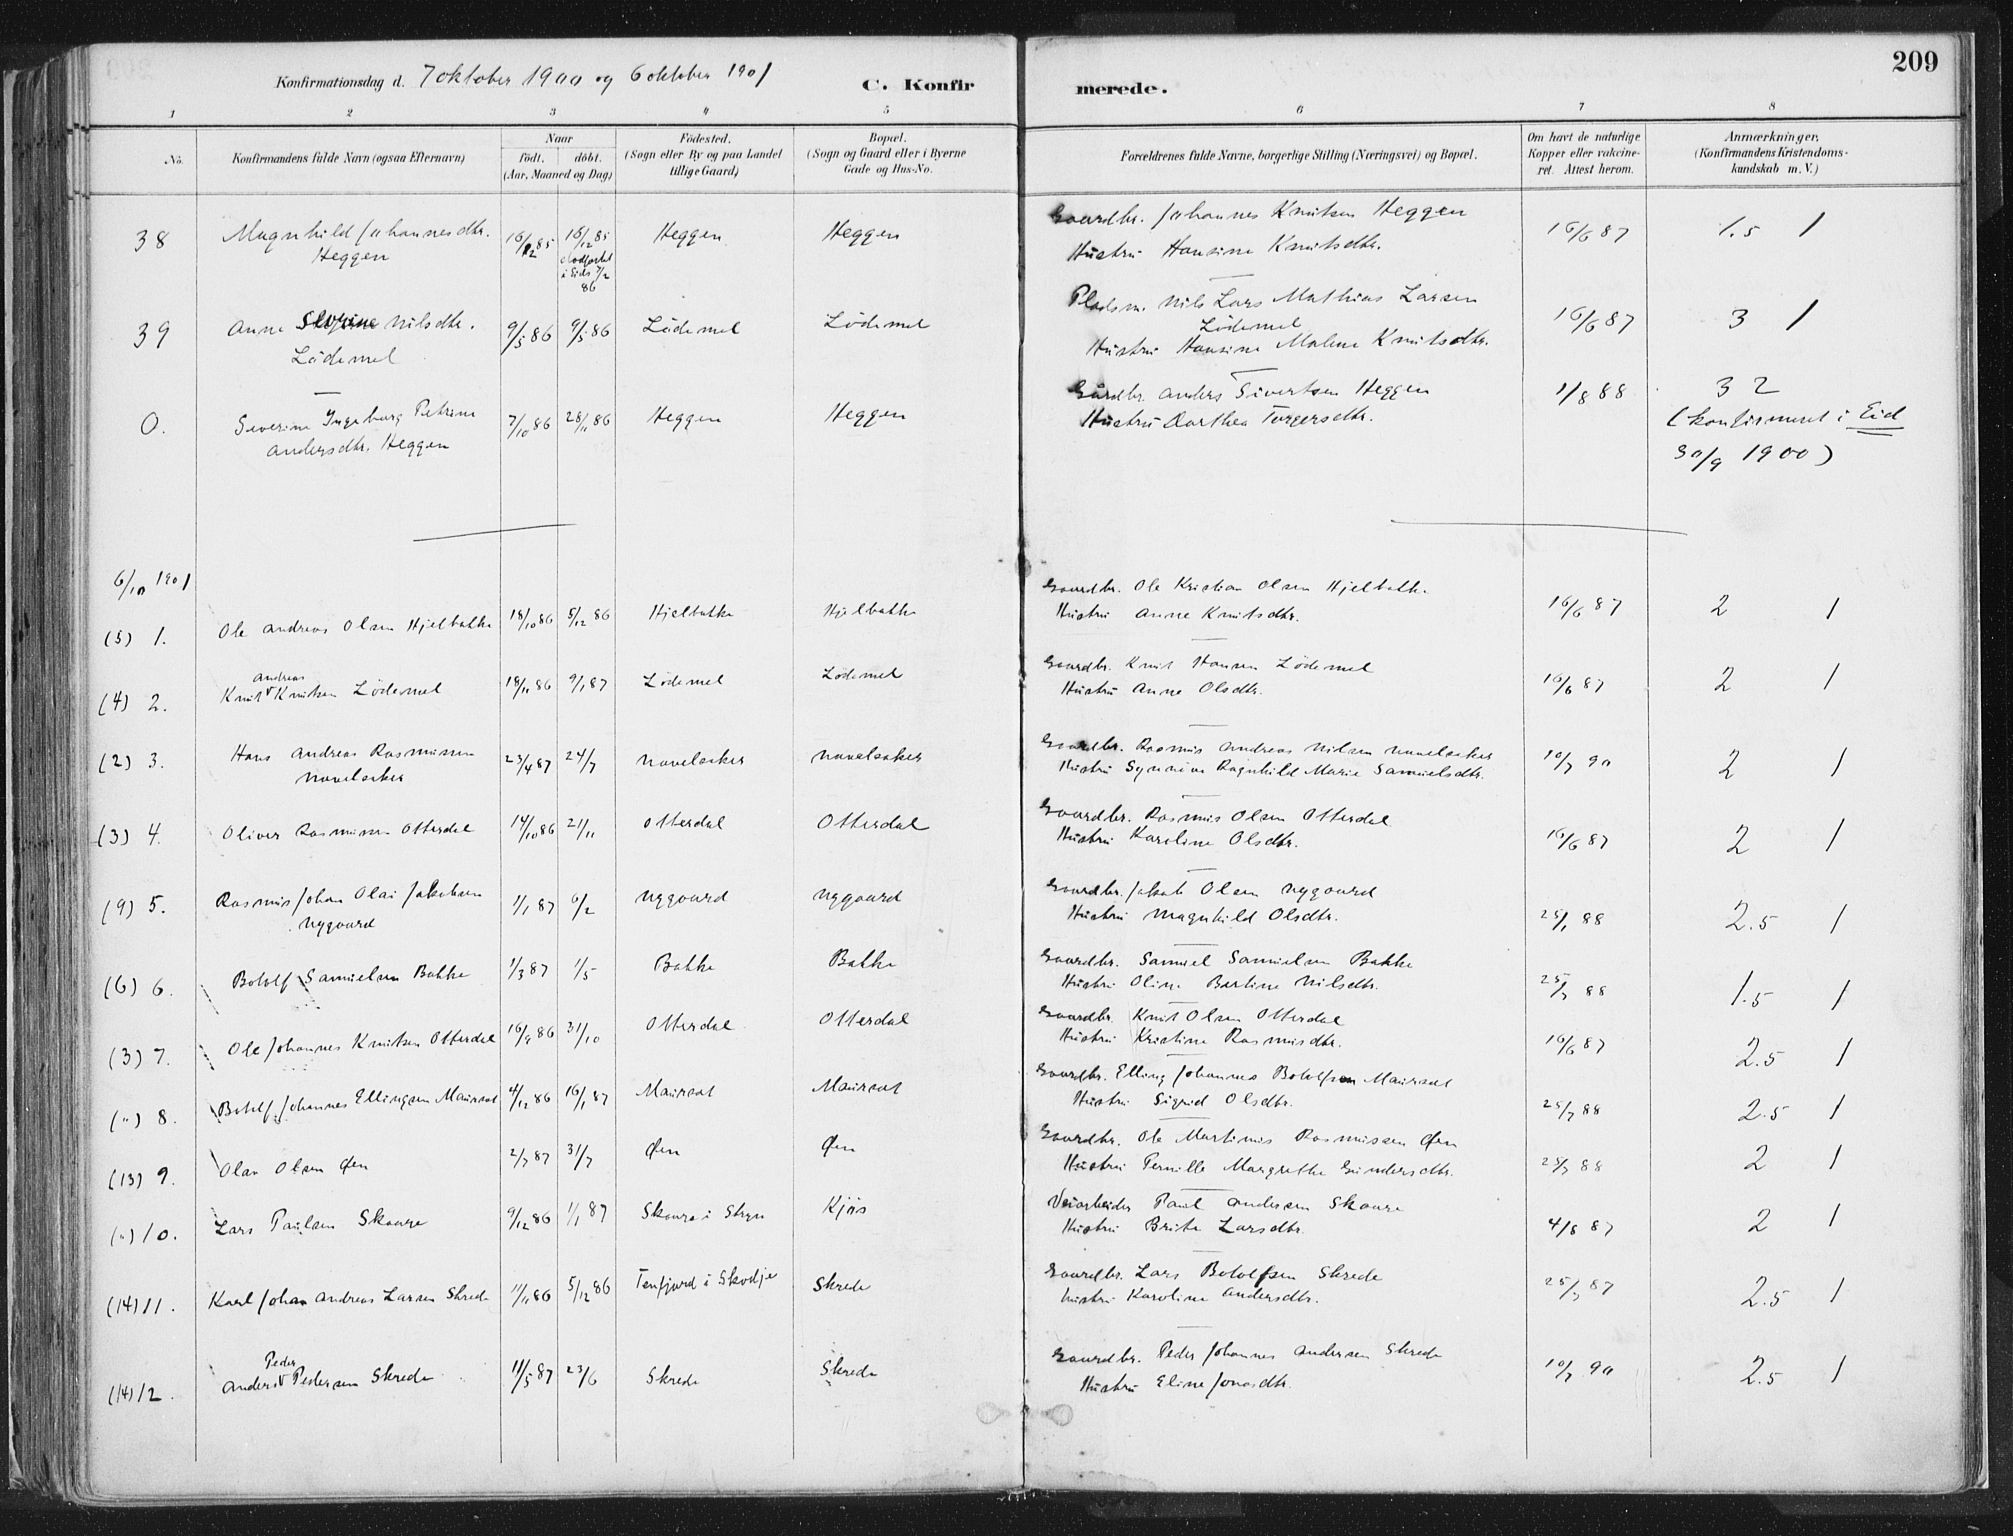 209
Konfirmationsdag d. 7 oktober 1900 og 6 oktober 1901
C. Konfirmerede.
1 2 3 4 5 6 7 8
No. Konfirmandens fulde Navn (ogsaa Efternavn) Naar födt. döbt. (Aar, Maaned og Dag) Födested. (Sogn eller By og paa Landet tillige Gaard) Bopæl. (Sogn og Gaard eller i Byerne Gade og Hus-No. Forældrenes fulde Navne, borgerlige Stilling (Næringsvei) og Bopæl. Om havt de naturlige Kopper eller vakcineret. Attest herom. Anmærkninger, (Konfirmandens Kristendomskundskab m.V.)
38 Magnhild Johannesdtr. 16/12 85 16/12 85 Heggen Heggen Gaardbr. Johannes Knutsen Heggen 16/6 87 1.5 1
Heggen i Eids 7/2 86 Hustru Hansine Knutsdtr.
39 Anne Nilsdtr. 9/5 86 9/5 86 Lødemel Lødemel Pladsm. Nils Lars Mathias Larsen 16/6 87 3 1
Lödemel Lödemel
Hustru Hansine Malene Knutsdtr.
0. Severine Ingeborg Petrine 7/10 86 28/11 86 Heggen Heggen Gardbr. Anders Sivertsen Heggen 1/8 88 3 2
Andersdtr. Heggen Hustru Dorthea Torgersdtr. (konfirmeret i Eid
30/9 1900)
6/10 1901
(5) 1. Ole Andreas Olsen Hjelbakke 18/10 86 5/12 86 Hjelbakke Hjelbakke Gaardbr. Ole Kristian Olsen Hjelbakke 16/6 87 2 1
Hustru Anne Knutsdtr.
(4) 2. Knut Andreas Knutsen Lødemel 18/11 86 9/1 87 Lødemel Lødemel Gaardbr. Knut Hansen Lødemel 16/6 87 2 1
Hustru Anne Olsdtr.
(2) 3. Hans Andreas Rasmussen 23/4 87 24/7 Navelsaker Navelsaker Gaardbr. Rasmus Andreas Nilsen Navelsaker 10/7 90 2 1
Navelsaker Hustru Synnøve Ragnhild Marie Samuelsdtr.
(3) 4. Oliver Rasmussen Otterdal 14/10 86 21/11 Otterdal Otterdal Gaardbr. Rasmus Olsen Otterdal 16/6 87 2 1
Hustru Karoline Olsdtr.
(9) 5. Rasmus Johan Olai Jakobsen 1/1 87 6/2 Nygaard Nygaard Gaardbr. Jakob Olsen Nygaard 25/1 88 2.5 1
Nygaard Hustru Magnhild Olsdtr.
(6) 6. Botolf Samuelsen Bakke 1/3 87 1/5 Bakke Bakke Gaardbr. Samuel Samuelsen Bakke 25/7 88 1.5 1
Hustru Oline Bertine Nilsdtr.
(3) 7. Ole Johannes Knutsen Otterdal 16/9 86 31/10 Otterdal Otterdal Gaardbr. Knut Olsen Otterdal 16/6 87 2.5 1
Hustru Kristine Rasmusdtr.
(") 8. Botolf Johannes Ellingsen Maurset 4/12 86 16/1 87 Maurset Maurset Gaardbr. Elling Johannes Botolfsen Maurset 25/7 88 2.5 1
Hustru Sigrid Olsdtr.
(13) 9. Olav Olsen Øen 2/7 87 31/7 Øen Øen Gaardbr. Ole Martinus Rasmussen Øen 25/7 88 2 1
Hustru Pernille Margrethe Gundersdtr.
(") 10. Lars Paulsen Skaare 9/12 86 1/1 87 Skaare i Stryn Kjøs Veiarbeider Paul Andersen Skaare 4/8 87 2 1
Hustru Brite Larsdtr.
(14) 11. Karl Johan Andreas Larsen Skrede 11/11 86 5/12 86 Tenfjord i Skodje Skrede Gaardbr. Lars Botolfsen Skrede 25/7 87 2.5 1
Hustru Karoline Andersdtr.
(14) 12. Anders Peder Pedersen Skrede 11/5 87 23/6 Skrede Skrede Gaardbr. Peder Johannes Andersen Skrede 10/7 90 2.5 1
Hustru Eline Jonasdtr.